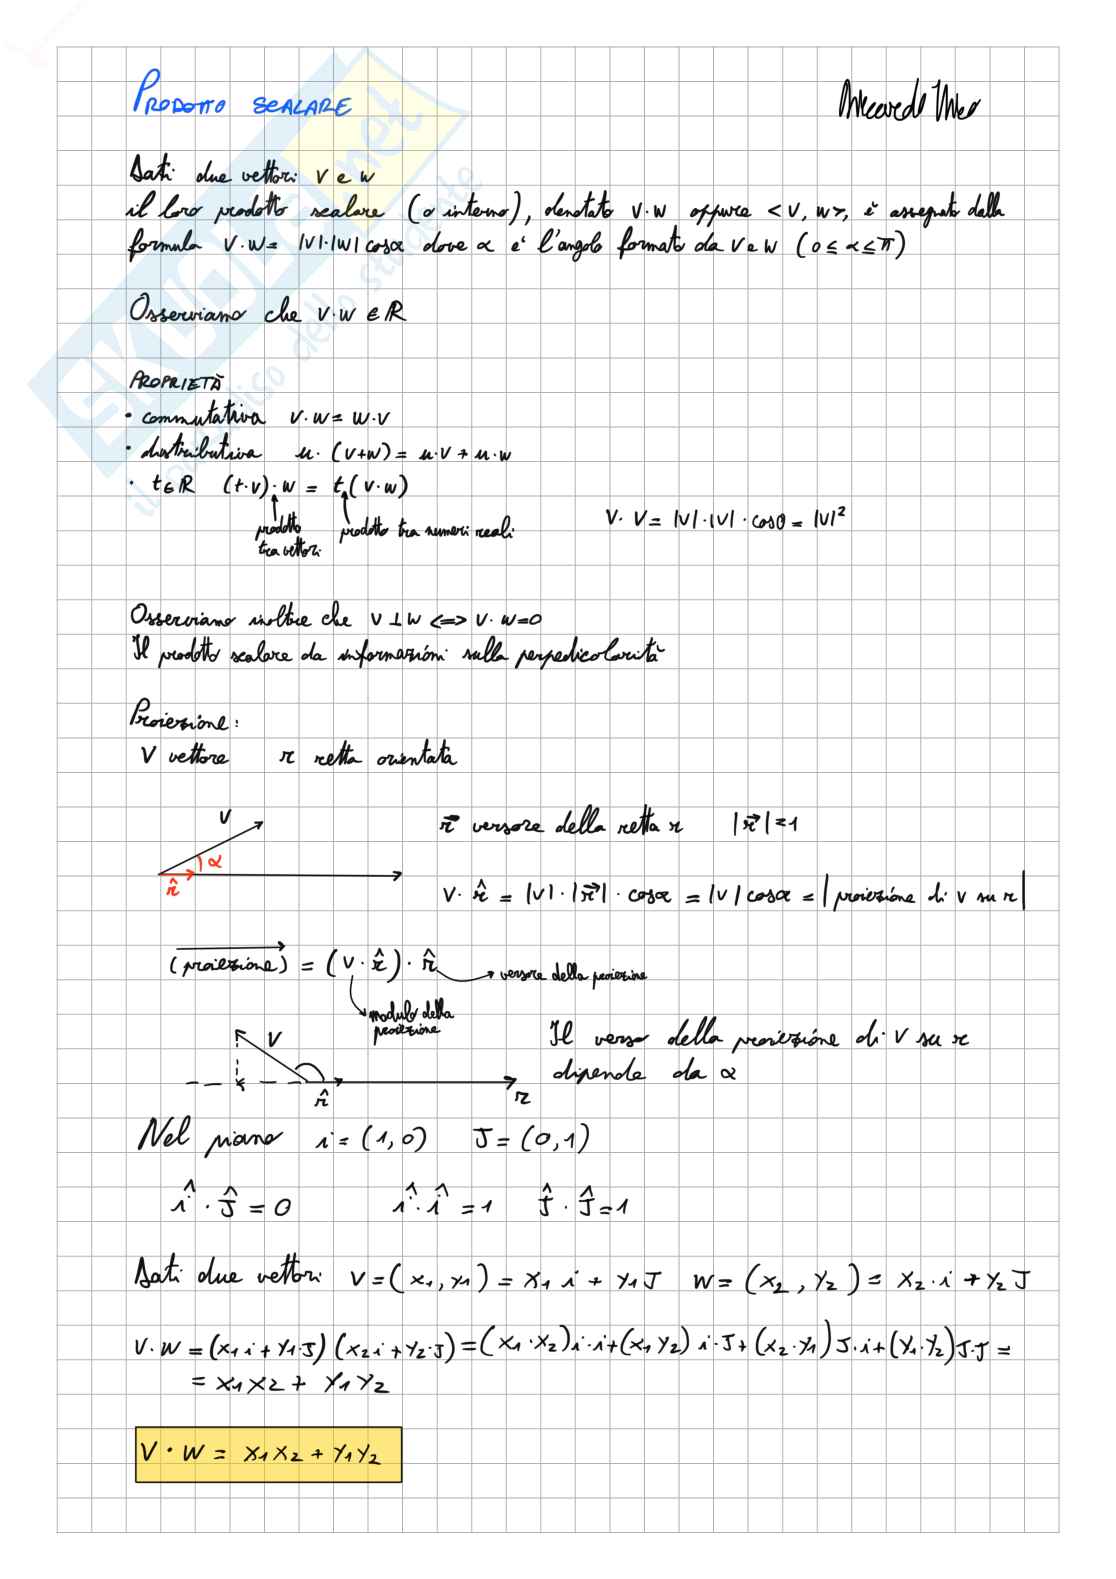 PRODOTTO SCALARE
Dati due vettori v e w
il loro prodotto scalare (o interno), denotato v·w oppure <v, w>, è assegnato dalla
formula v·w = |v|·|w| cosα dove α e' l'angolo formato da v e w (0 ≤ α ≤ π)
Osserviamo che v·w ∈ ℝ
PROPRIETÀ
• commutativa v·w = w·v
• distributiva u·(v+w) = u·v + u·w
• t∈ℝ (t·v)·w = t(v·w)
prodotto tra vettori
prodotto tra numeri reali
v·v = |v|·|v|·cos0 = |v|²
Osserviamo inoltre che v ⊥ w <=> v·w=0
Il prodotto scalare da informazioni sulla perpedicolarità
Proiezione:
v vettore r retta orientata
v
α
r̂
r⃗ versore della retta r |r⃗|=1
v·r̂ = |v|·|r⃗|·cosα = |v|cosα = |proiezione di v su r|
(proiezione) = (v·r̂)·r̂
versore della proiezine
modulo della
proiezione
v
r̂
r
Il verso della proiezione di v su r
dipende da α
Nel piano i = (1,0) J = (0,1)
î·Ĵ = 0 î·î = 1 Ĵ·Ĵ = 1
Dati due vettori v = (x₁, y₁) = x₁ i + y₁ J w = (x₂, y₂) = x₂·i + y₂ J
v·w = (x₁ i + y₁·J) (x₂ i + y₂·J) = (x₁·x₂) i·i + (x₁ y₂) i·J + (x₂·y₁) J·i + (y₁·y₂) J·J =
= x₁x₂ + y₁y₂
v·w = x₁x₂ + y₁y₂
SKUOLA.net
il paradiso dello studente